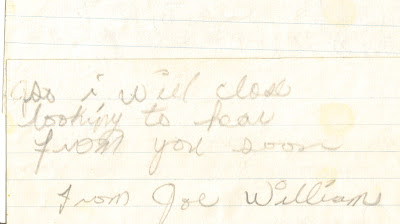 so i will close
looking to hear
from you soon
from Joe William